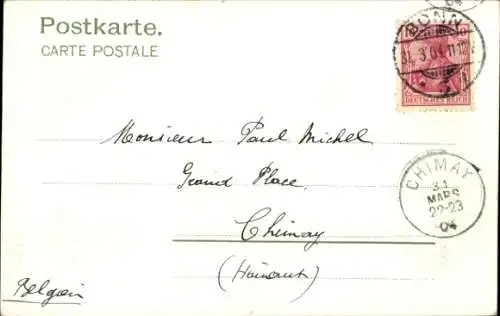 Postkarte.
CARTE POSTALE
BONN
31. 3. 04. 11-12
DEUTSCHES REICH
Monsieur Paul Michel
Grand Place.
Chimay
(Hainaut)
Belgien
CHIMAY
31
MARS
22-23
04